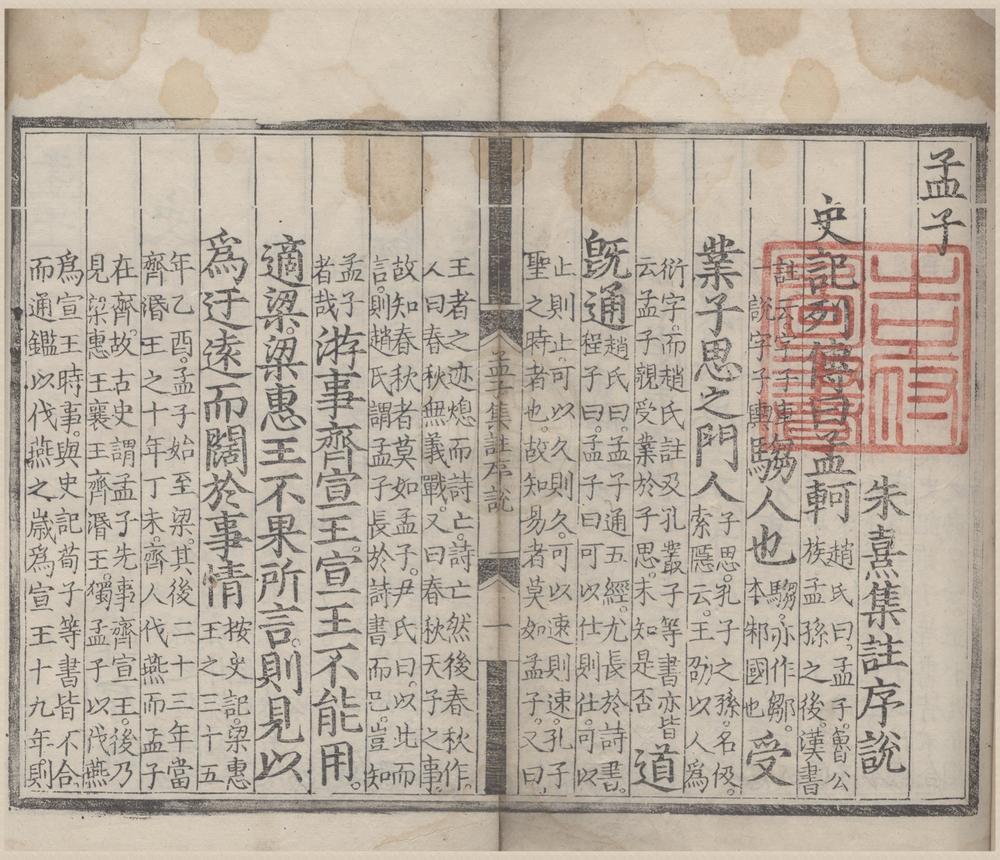 孟子
朱熹集註序說
史記列傳曰孟軻趙氏曰。孟子。魯公族孟孫之後。漢書
註云。字子車。一說字子輿。騶人也騶。亦作鄒。本邾國也。受
業子思之門人子思。孔子之孫。名伋。索隱云。王劭以人爲
衍字。而趙氏註及孔叢子等書亦皆云孟子親受業於子思。未知是否道
既通趙氏曰。孟子通五經。尤長於詩書。程子曰。孟子曰。可以仕則仕。可以
止則止。可以久則久。可以速則速。孔子聖之時者也。故知易者莫如孟子。又曰。
孟子集註序說 一
王者之迹熄而詩亡。詩亡然後春秋作。人曰春秋無義戰。又曰春秋天子之事。
故知春秋者莫如孟子。尹氏曰。以此而言。則趙氏謂孟子長於詩書而已。豈知
孟子者哉游事齊宣王。宣王不能用。
適梁。梁惠王不果所言。則見以
爲迂遠而闊於事情按史記。梁惠王之三十五
年乙酉。孟子始至梁。其後二十三年當齊湣王之十年丁未。齊人伐燕而孟子
在齊。故古史謂孟子先事齊宣王。後乃見梁惠王襄王齊湣王。獨孟子以伐燕
爲宣王時事。與史記荀子等書皆不合。而通鑑以伐燕之歲爲宣王十九年。則